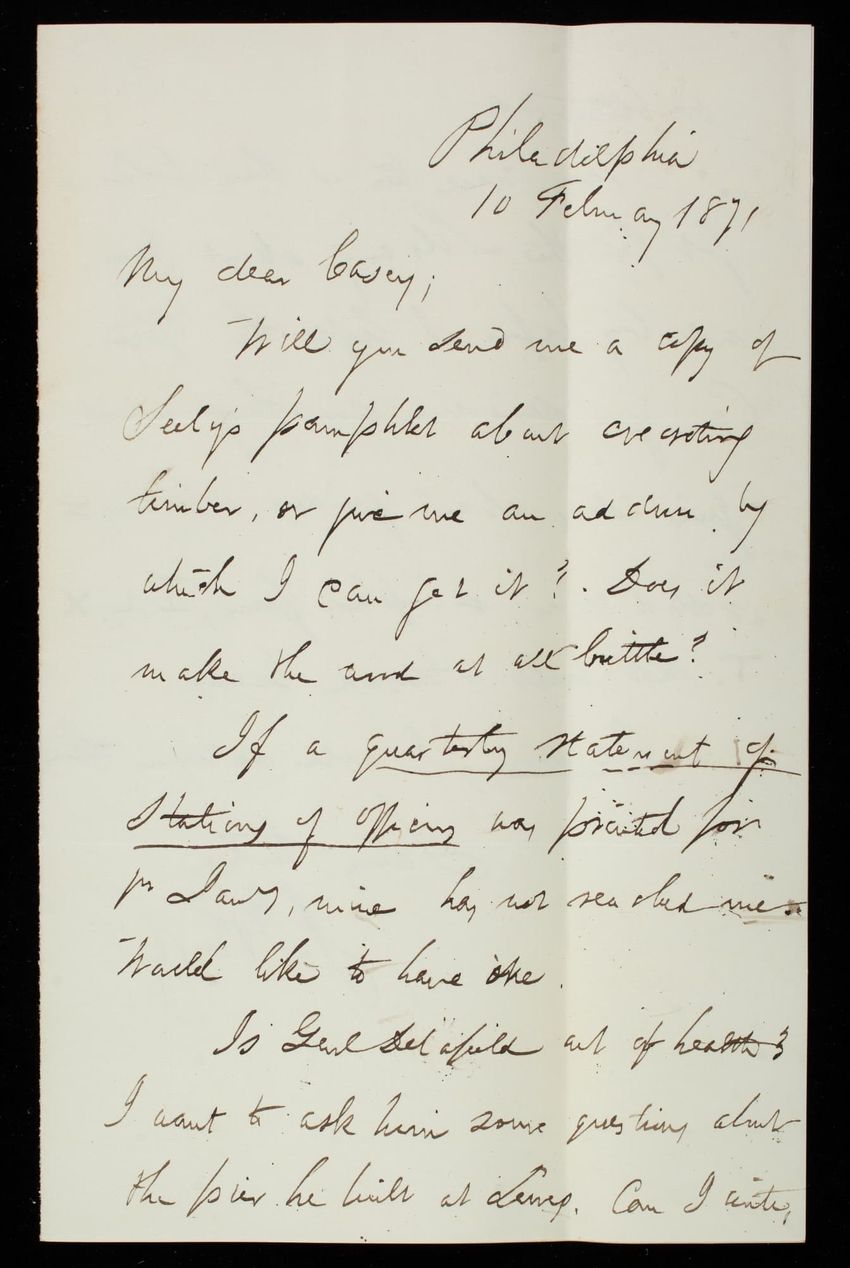 Philadelphia
10 February 1871
My dear Casey;
Will you send me a copy of
Seely's pamphlet about creosoting
timber, or give me an address by
which I can get it? Does it
make the wood at all brittle?
If a quarterly statement of
stations of officers was printed for
1st Jany, mine has not reached me.
Would like to have one.
Is Genl Delafield out of health?
I want to ask him some questions about
the pier he built at Lewes. Can I write,